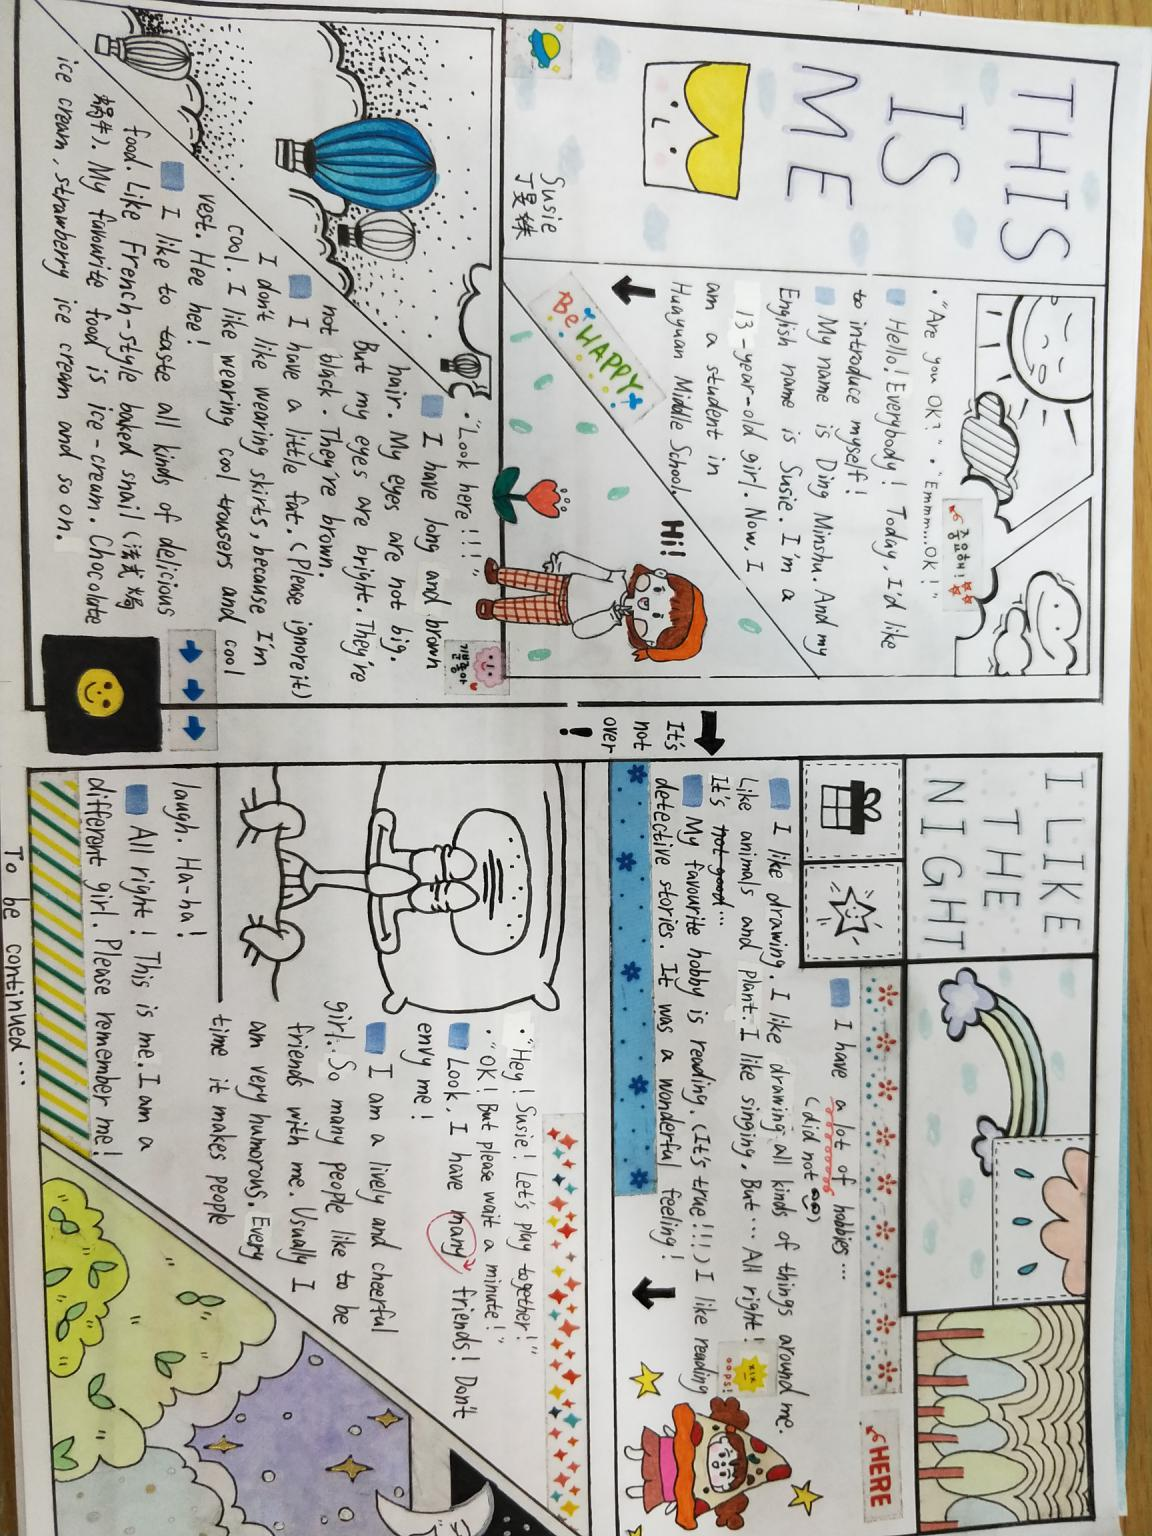 THIS
IS
ME
Susie
丁旻姝
• "Are you OK?" • "Emmm...OK!"
중요해!
Hello! Everybody! Today, I'd like
to introduce myself!
My name is Ding Minshu. And my
English name is Susie. I'm a
13-year-old girl. Now, I
am a student in
Huayuan Middle School.
Be HAPPY
Hi!
• "Look here!!!"
기분좋아
I have long and brown
hair. My eyes are not big.
But my eyes are bright. They're
not black. They're brown.
I have a little fat. (Please ignore it)
I don't like wearing skirts, because I'm
cool. I like wearing cool trousers and cool
vest. Hee hee!
I like to taste all kinds of delicious
food. Like French-style baked snail (法式焗
蜗牛). My favourite food is ice-cream. Chocolate
ice cream, strawberry ice cream and so on.
It's
not
over
!
I LIKE
THE
NIGHT
HERE
I have a lot of hobbies...
(did not)
I like drawing. I like drawing all kinds of things around me.
Like animals and plant. I like singing. But... All right!
It's not good...
OOPS!
My favourite hobby is reading. (It's true!!!) I like reading
detective stories. It was a wonderful feeling!
• "Hey! Susie! Let's play together!"
• "OK! But please wait a minute!"
Look, I have many friends! Don't
envy me!
I am a lively and cheerful
girl. So many people like to be
friends with me. Usually I
am very humorous. Every
time it makes people
laugh. Ha-ha!
All right! This is me. I am a
different girl. Please remember me!
To be continued...